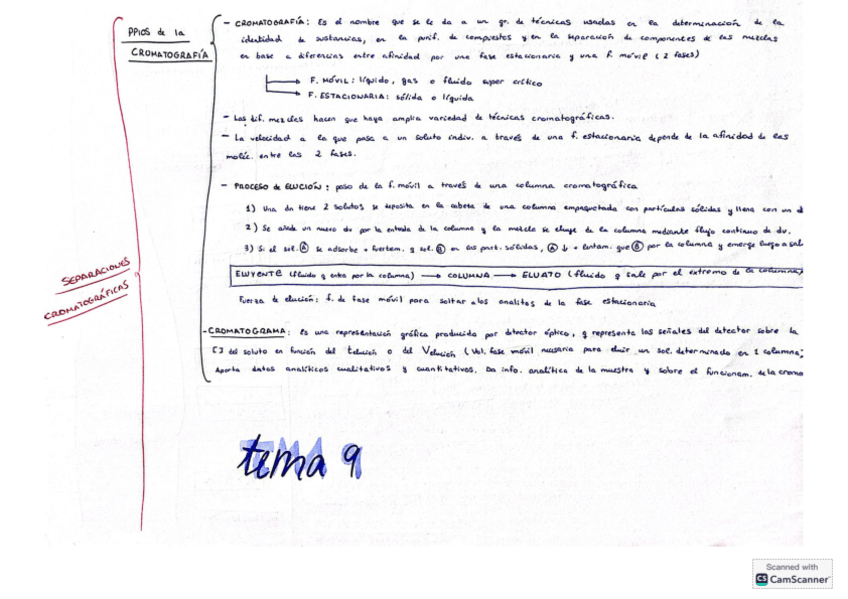 PPIOS de la
CROMATOGRAFÍA
- CROMATOGRAFÍA: Es el nombre que se le da a un gr. de técnicas usadas en la determinación de la
identidad de sustancias, en la purif. de compuestos y en la separación de componentes de las mezclas
en base a diferencias entre afinidad por una fase estacionaria y una f. móvil (2 fases)
F. MÓVIL: líquido, gas o fluido super crítico
F. ESTACIONARIA: sólida o líquida
- Las dif. mezclas hacen que haya amplia variedad de técnicas cromatográficas.
- La velocidad a la que pasa a un soluto indiv. a través de una f. estacionaria depende de la afinidad de las
moléc. entre las 2 fases.
- PROCESO de ELUCIÓN: paso de la f. móvil a través de una columna cromatográfica
1) Una dn tiene 2 solutos se deposita en la cabeza de una columna empaquetada con partículas sólidas y llena con un d
2) Se añade un nuevo dv por la entrada de la columna y la mezcla se eluye de la columna mediante flujo continuo de dv.
3) Si el sol. A se adsorbe + fuertem. q sol. B en las part. sólidas, A ↓ + lentam. que B por la columna y emerge luego a sal
ELUYENTE (fluido q entra por la columna) → COLUMNA → ELUATO (fluido q sale por el extremo de la columna)
Fuerza de elución: f. de fase móvil para soltar a los analitos de la fase estacionaria
- CROMATOGRAMA: Es una representación gráfica producida por detector óptico, q representa las señales del detector sobre la
[] del soluto en función del t elución o del V elución (Vol. fase móvil necesaria para eluir un sol. determinado en 1 columna;
Aporta datos analíticos cualitativos y cuantitativos. Da info. analítica de la muestra y sobre el funcionam. de la croma
SEPARACIONES
CROMATOGRÁFICAS
tema 9
Scanned with
CS CamScanner